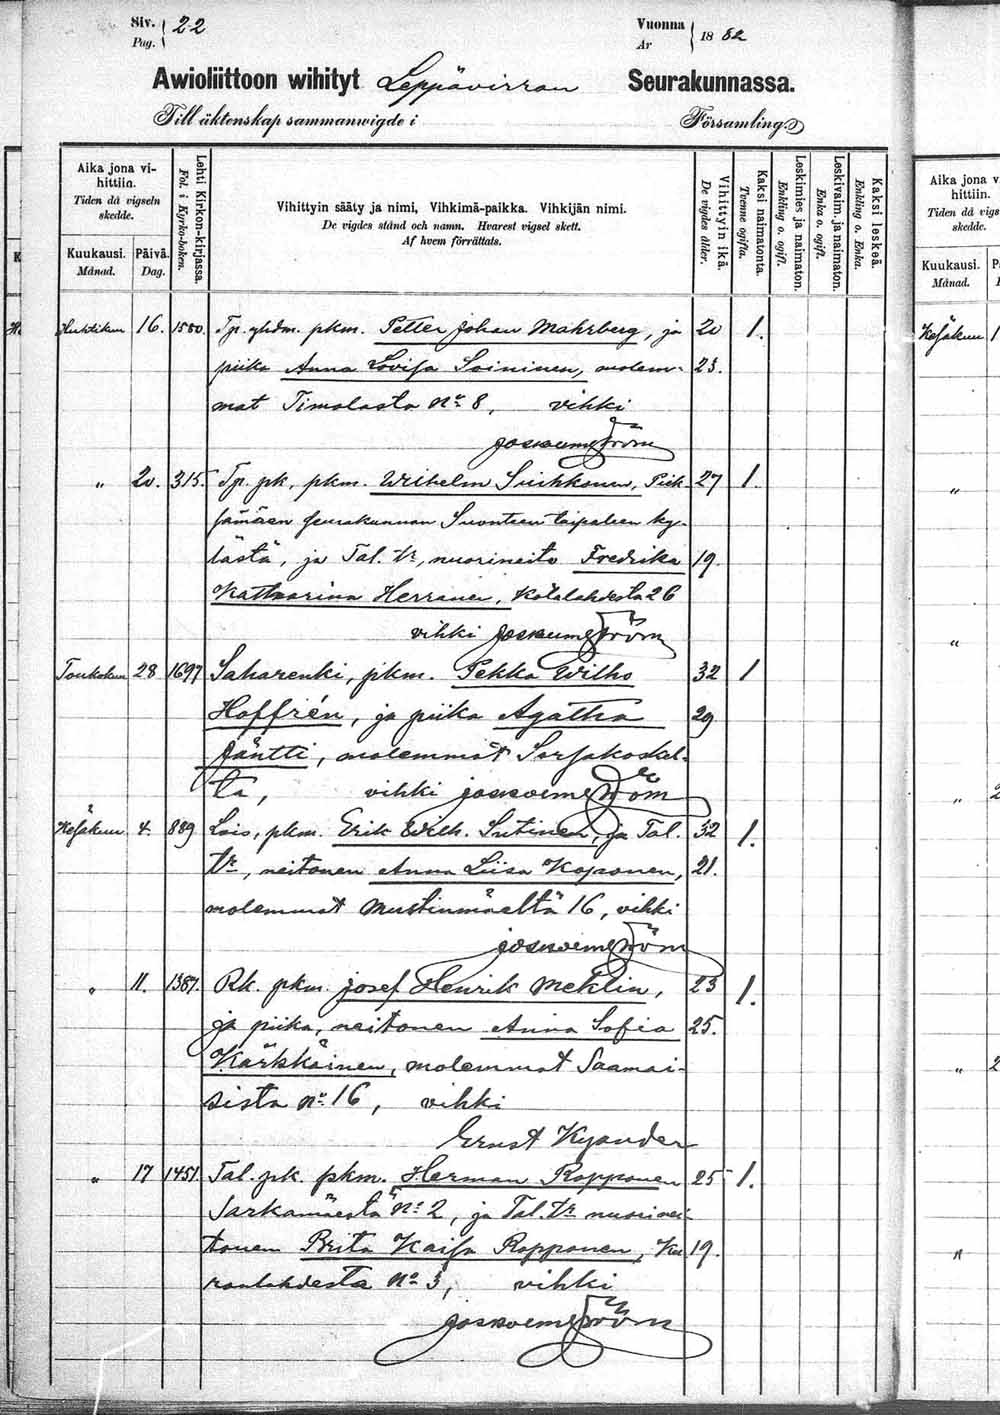 Siv. 22
Pag.
Vuonna 1882
År
Awioliittoon wihityt Leppävirran Seurakunnassa.
Till äktenskap sammanwigde i Församling.
Aika jona vihittiin.
Tiden då vigseln skedde.
Kuukausi. Månad.
Päivä. Dag.
Lehti Kirkon-kirjassa.
Fol. i Kyrko-boken.
Vihittyin sääty ja nimi, Vihkimä-paikka. Vihkijän nimi.
De vigdes stånd och namn. Hvarest vigsel skett.
Af hvem förrättats.
Vihittyin ikä.
De vigdes ålder.
Kaksi naimatonta.
Tvenne ogifta.
Leskimies ja naimaton.
Enkling o. ogift.
Leskivaim. ja naimaton.
Enka o. ogift.
Kaksi leskeä.
Enkling o. Enka.
Huhtikuu 16. 1580. Tp. yhdm. pkm. Petter Johan Mahrberg, ja 20 1.
piika Anna Lovisa Soininen, molem- 23.
mat Timolasta No 8, vihki
„ 20. 315. Tp. pk, pkm. Wilhelm Suihkonen, Piek- 27 1.
sämäen seurakunnan Suonteen taipaleen ky-
lästä, ja Tal. tr, nuorineito Fredrika 19.
Katharina Herranen, Kotalahdesta 26
vihki
Toukokuu 28 1697 Saharenki, pkm. Pekka Wilho 32 1
Hoffrén, ja piika Agatha 29
Jäntti, molemmat Sorsakoskel-
ta, vihki
Kesäkuu 4. 889 Lois, pkm. Erik Wilh. Sutinen, ja Tal. 32 1.
tr, neitonen Anna Liisa Koponen, 21.
molemmat Mustinmäeltä 16, vihki
„ 11. 1387. Rk. pkm. Josef Henrik Meklin, 23 1.
ja piika, neitonen Anna Sofia 25.
Kärkkäinen, molemmat Saamai-
sista no 16, vihki
Ernst Kyander
„ 17 1451. Tal. pk. pkm. Herman Ropponen 25 1.
Sarkamäestä No 2, ja Tal. tr nuorinei-
tonen Brita Kaisa Ropponen, Ku 19.
ronlahdesta No 3, vihki
Aika jona v
hittiin.
Tiden då vigs
skedde.
Kuukausi.
Månad.
Kesäkuu 1
„
„
„ 2
„ 2
„